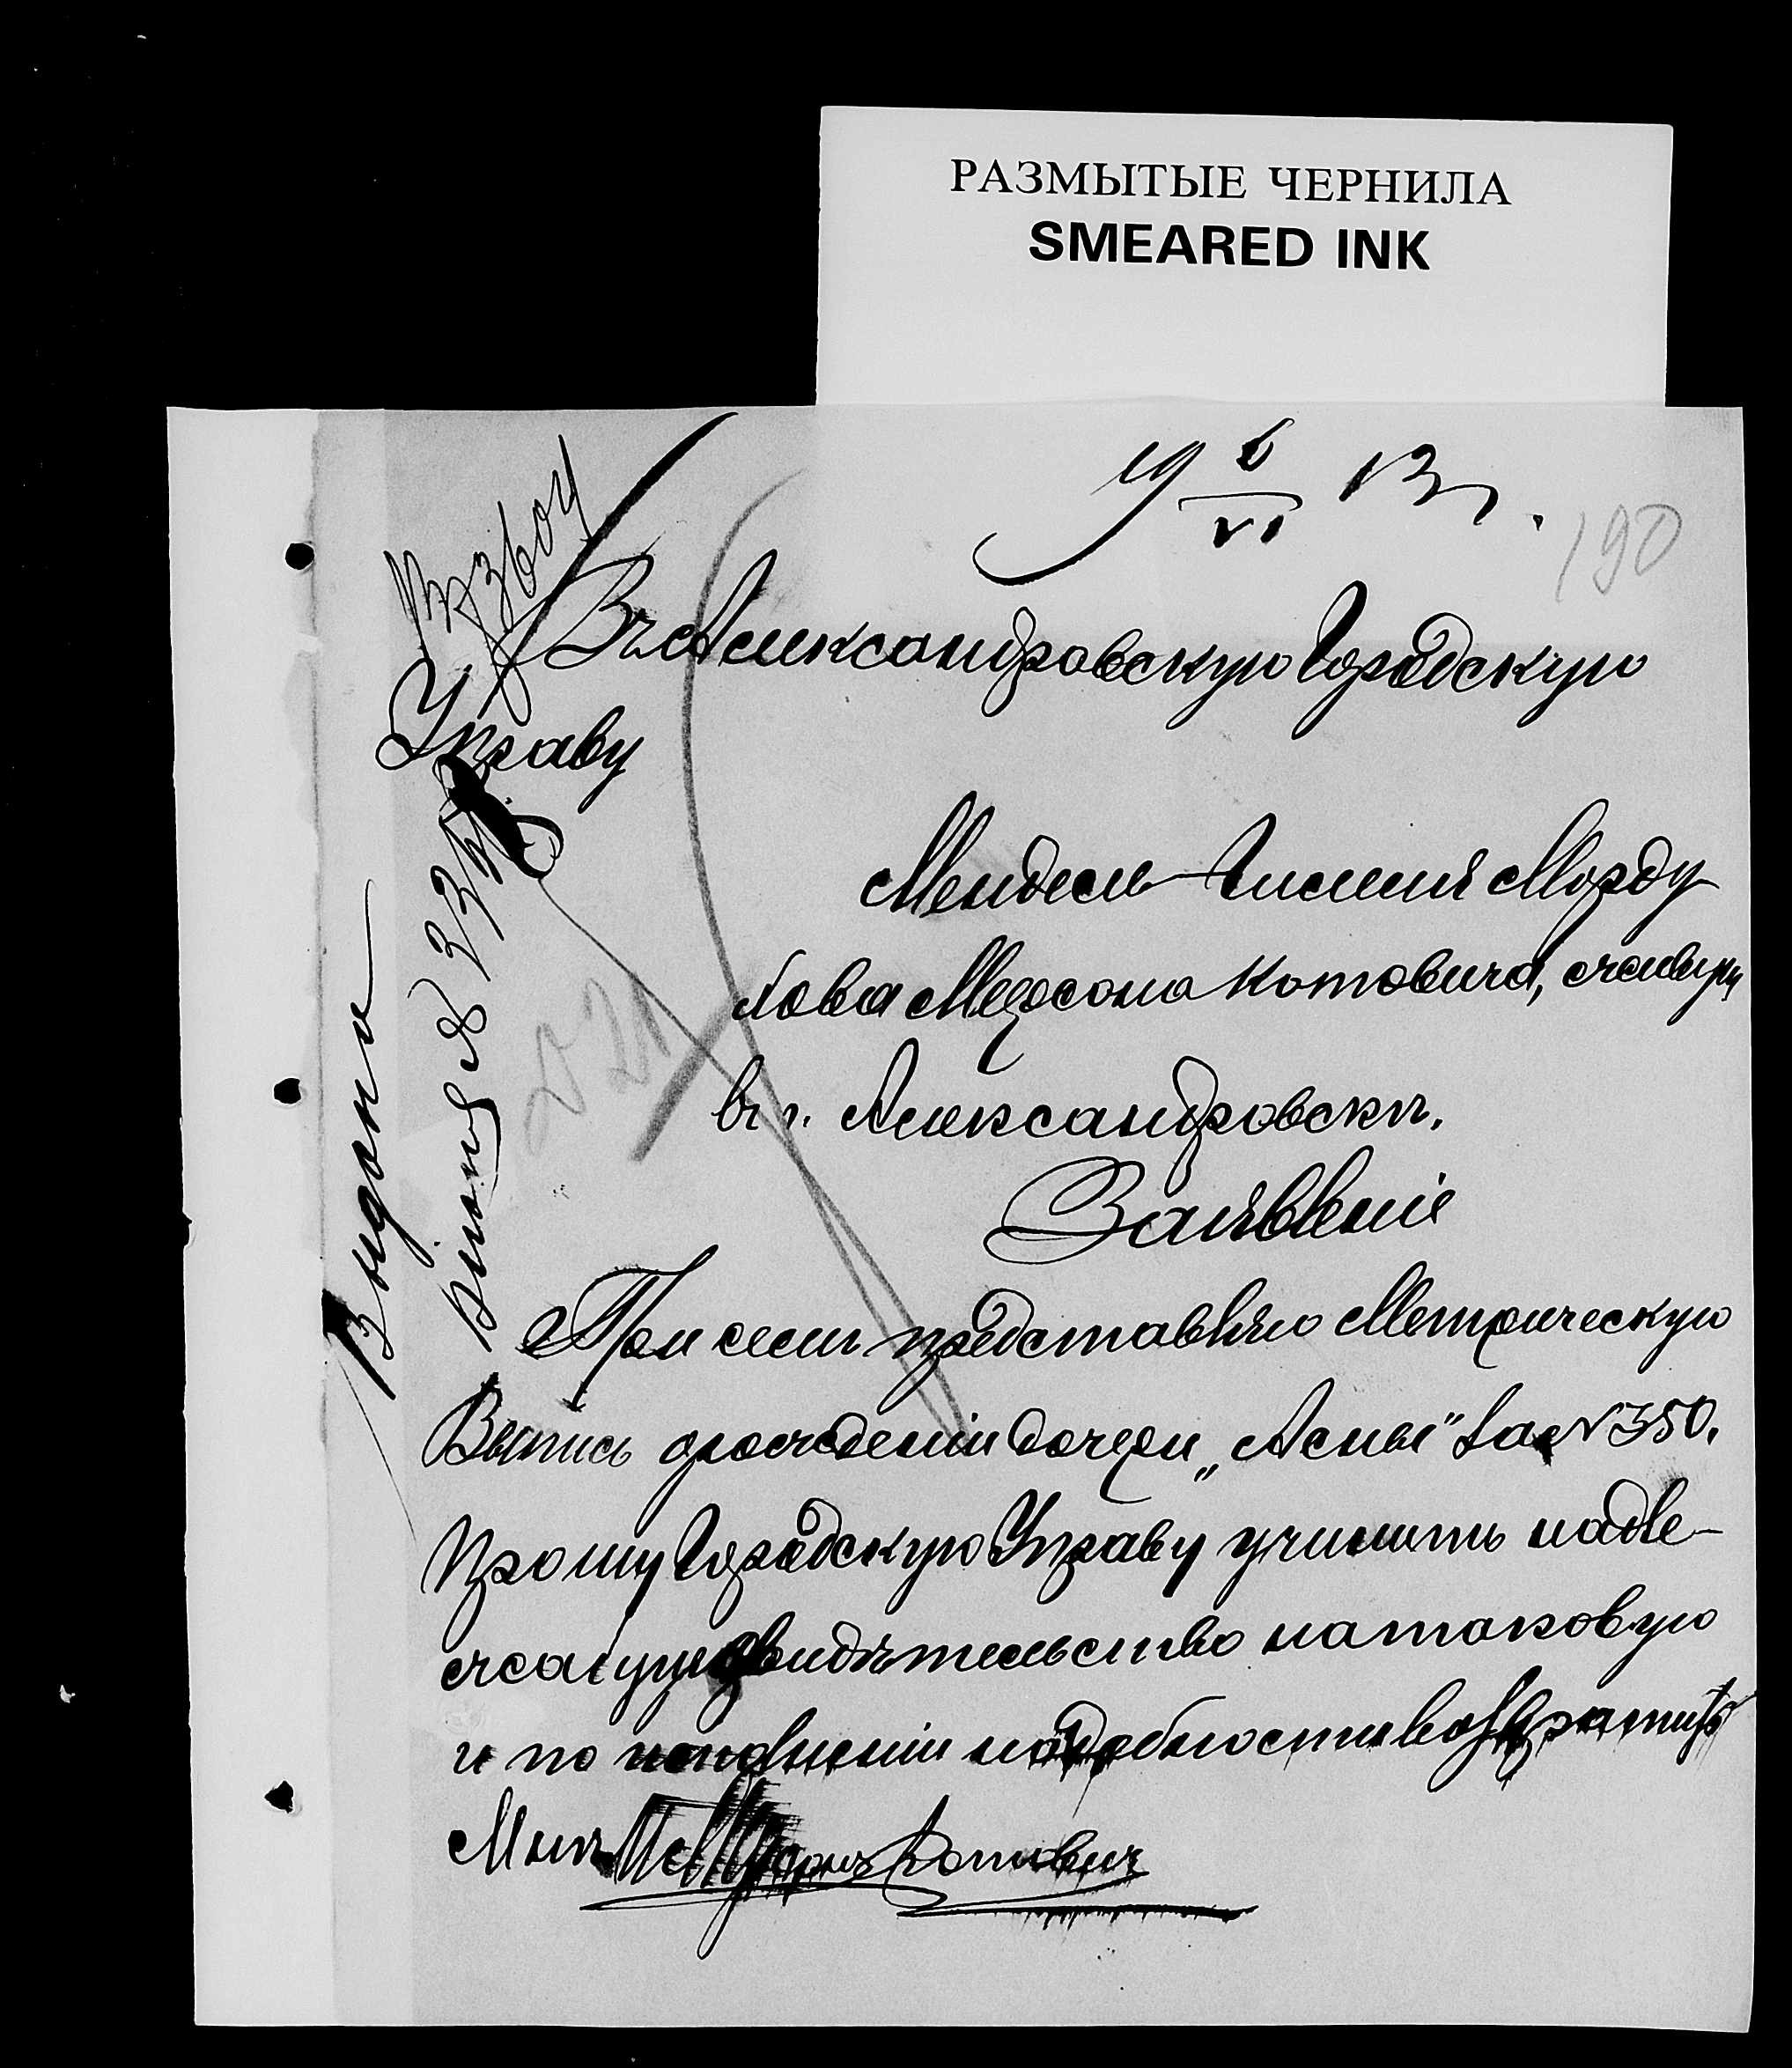 РАЗМЫТЫЕ ЧЕРНИЛА
SMEARED INK
19 6/VI 13 г.
190
Въ Александровскую Городскую
Управу
Мендель Гилеля Морду
хова Меерсона Котовича, живущ
въ г. Александровскѣ.
Заявленіе
При семъ представляю Метрическую
Выпись о рожденіи дочери „Асны" за № 350.
Прошу Городскую Управу учинить надле-
жащую свидѣтельство на таковую
и по надобности возвратить
Мнѣ Котовичъ
Выдано